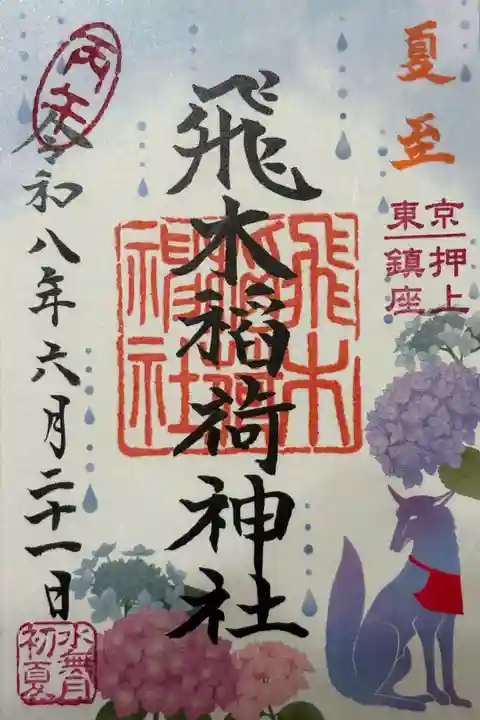 夏至
東京
押上鎮座
飛木稲荷神社
飛木稲荷神社
丙午
令和八年六月二十一日
水無月
初夏